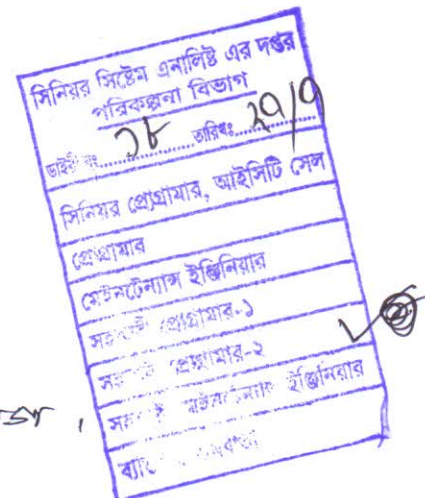 সিনিয়র সিস্টেম এনালিষ্ট এর দপ্তর
পরিকল্পনা বিভাগ
ডাইরী নং.....১৮.....তারিখঃ.....২৭/৭
সিনিয়র প্রোগ্রামার, আইসিটি সেল
প্রোগ্রামার
মেইনটেন্যান্স ইঞ্জিনিয়ার
সহকারী প্রোগ্রামার-১
সহকারী প্রোগ্রামার-২
সহকারী মেইনটেন্যান্স ইঞ্জিনিয়ার